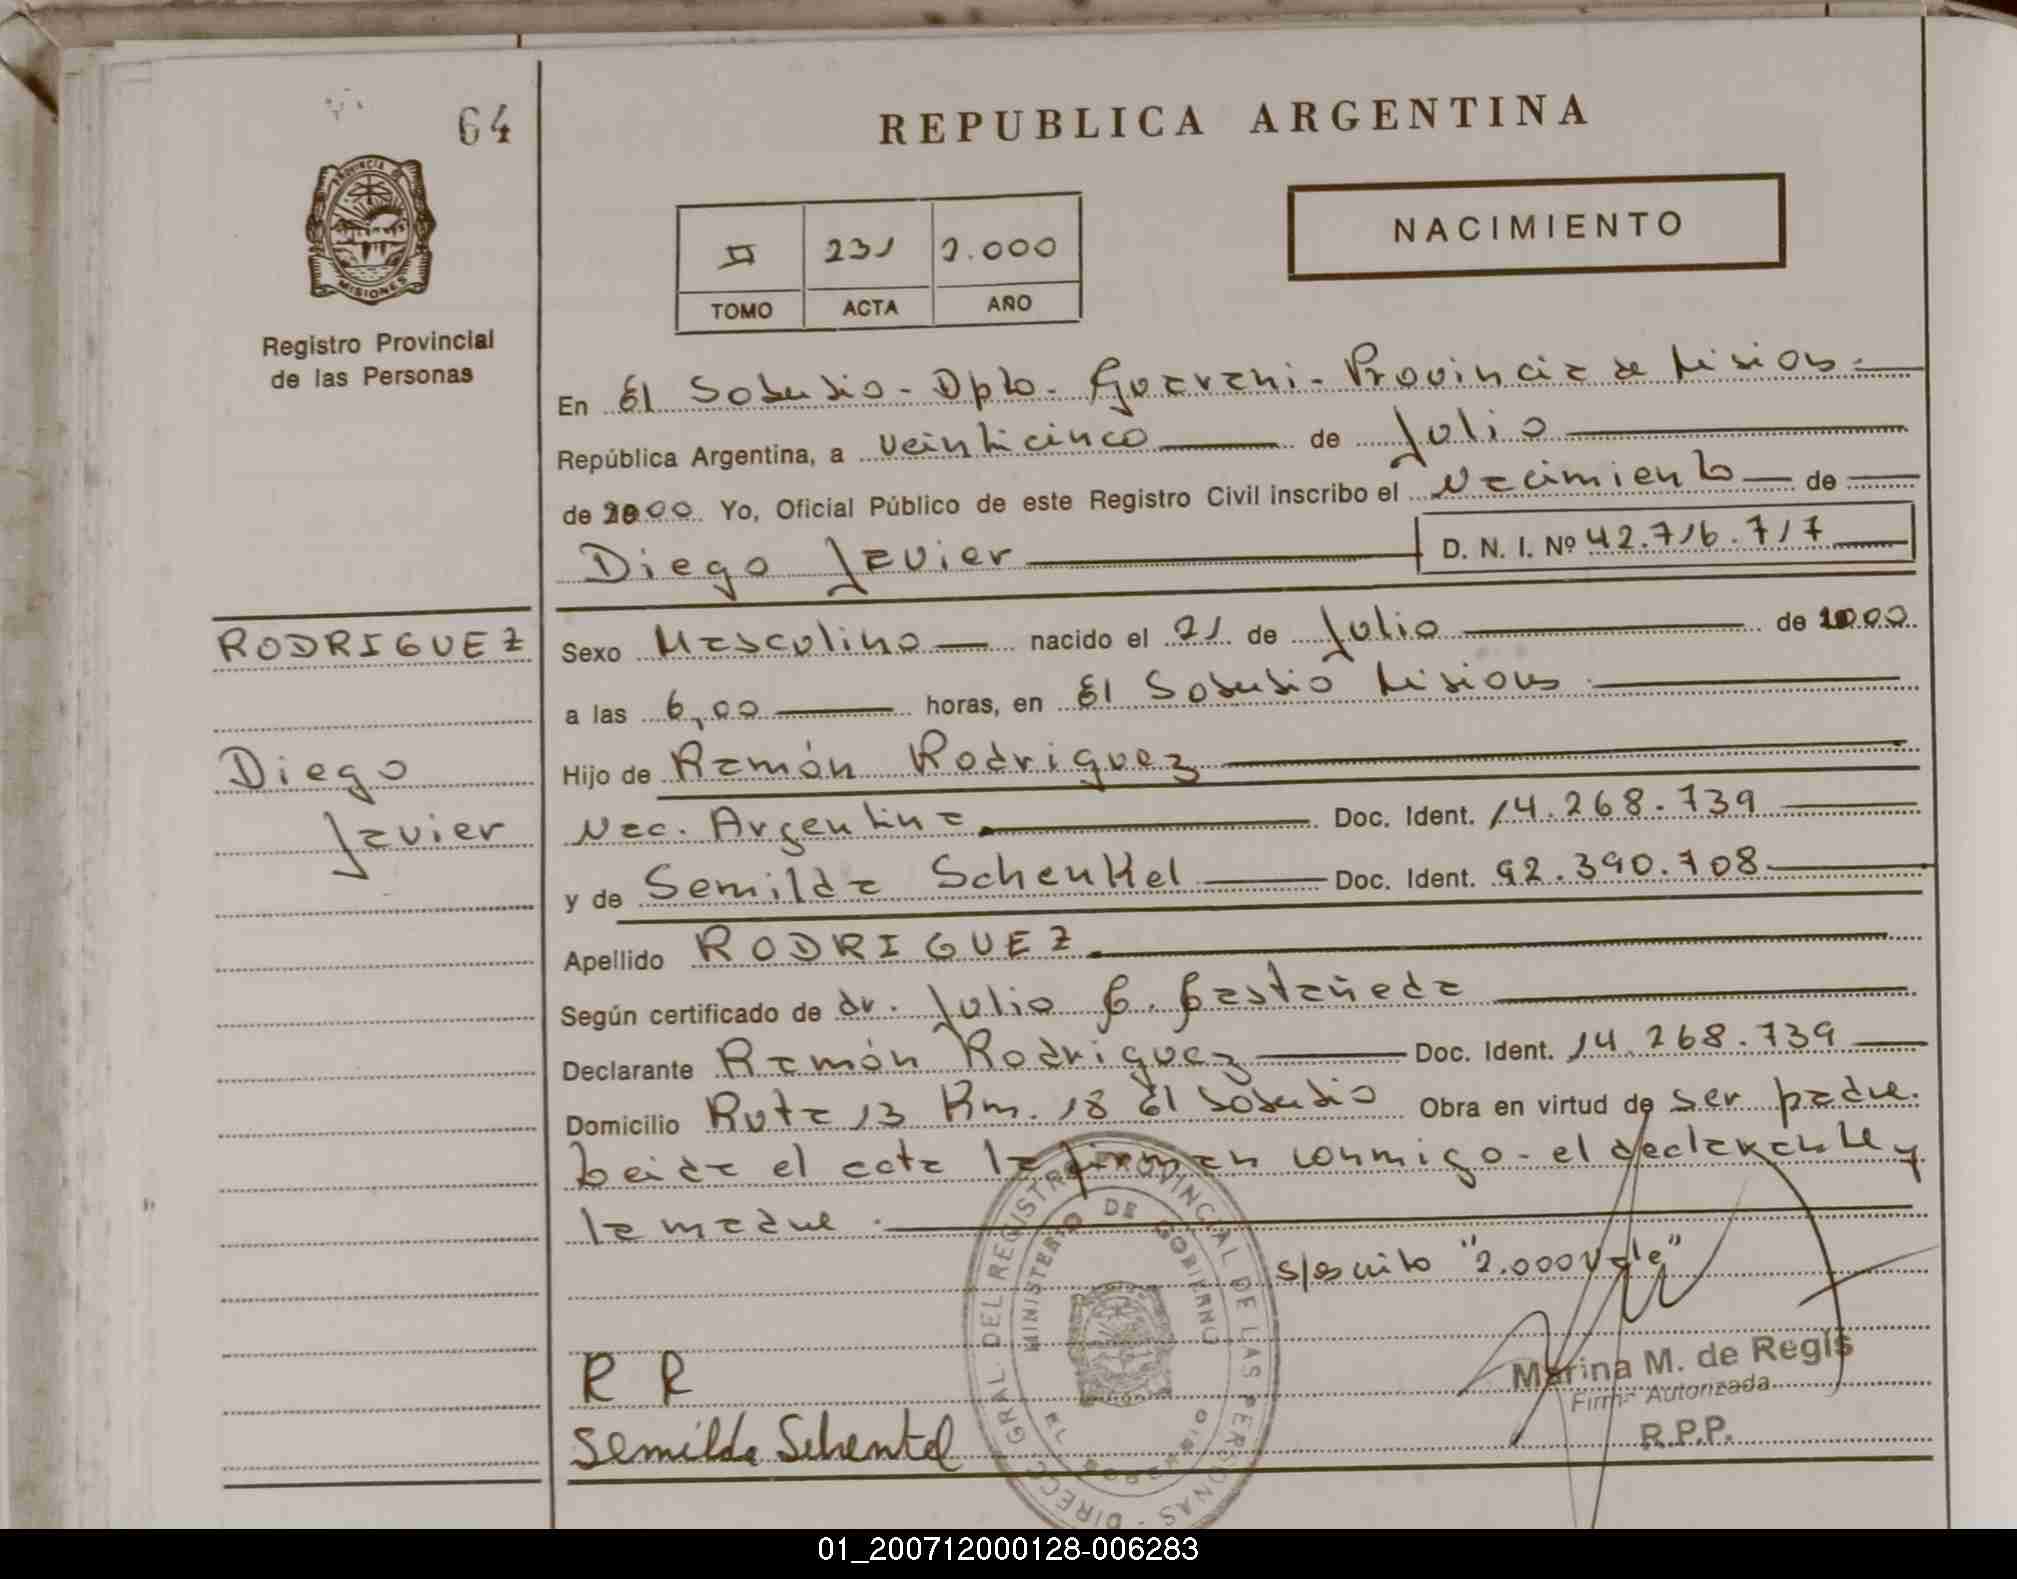 64
REPUBLICA ARGENTINA
PROVINCIA DE
MISIONES
Registro Provincial
de las Personas
NACIMIENTO
II 231 2.000
TOMO ACTA AÑO
En El Soberbio - Dpto. Guarani - Provincia de Misiones
República Argentina, a veinticinco de Julio
de 2000 Yo, Oficial Público de este Registro Civil inscribo el Nacimiento de
Diego Javier D. N. I. Nº 42.716.717
RODRIGUEZ
Diego
Javier
Sexo Masculino nacido el 21 de Julio de 2000
a las 6,00 horas, en El Soberbio Misiones
Hijo de Ramón Rodriguez
Nac. Argentina Doc. Ident. 14.268.739
y de Semilda Schenkel Doc. Ident. 92.390.708
Apellido RODRIGUEZ
Según certificado de dr. Julio C. Castañeda
Declarante Ramón Rodriguez Doc. Ident. 14.268.739
Domicilio Ruta 13 Km. 18 El Soberbio Obra en virtud de ser padre.
Leida el acta la firman conmigo - el declarante y
la madre.
s/escrito "2.000 vale"
R R
Semilda Schenkel
DIRECC GRAL DEL REGISTRO PROVINCIAL DE LAS PERSONAS
MINISTERIO DE GOBIERNO
EL SOBERBIO
Marina M. de Regis
Firma Autorizada
R.P.P.
01_200712000128-006283